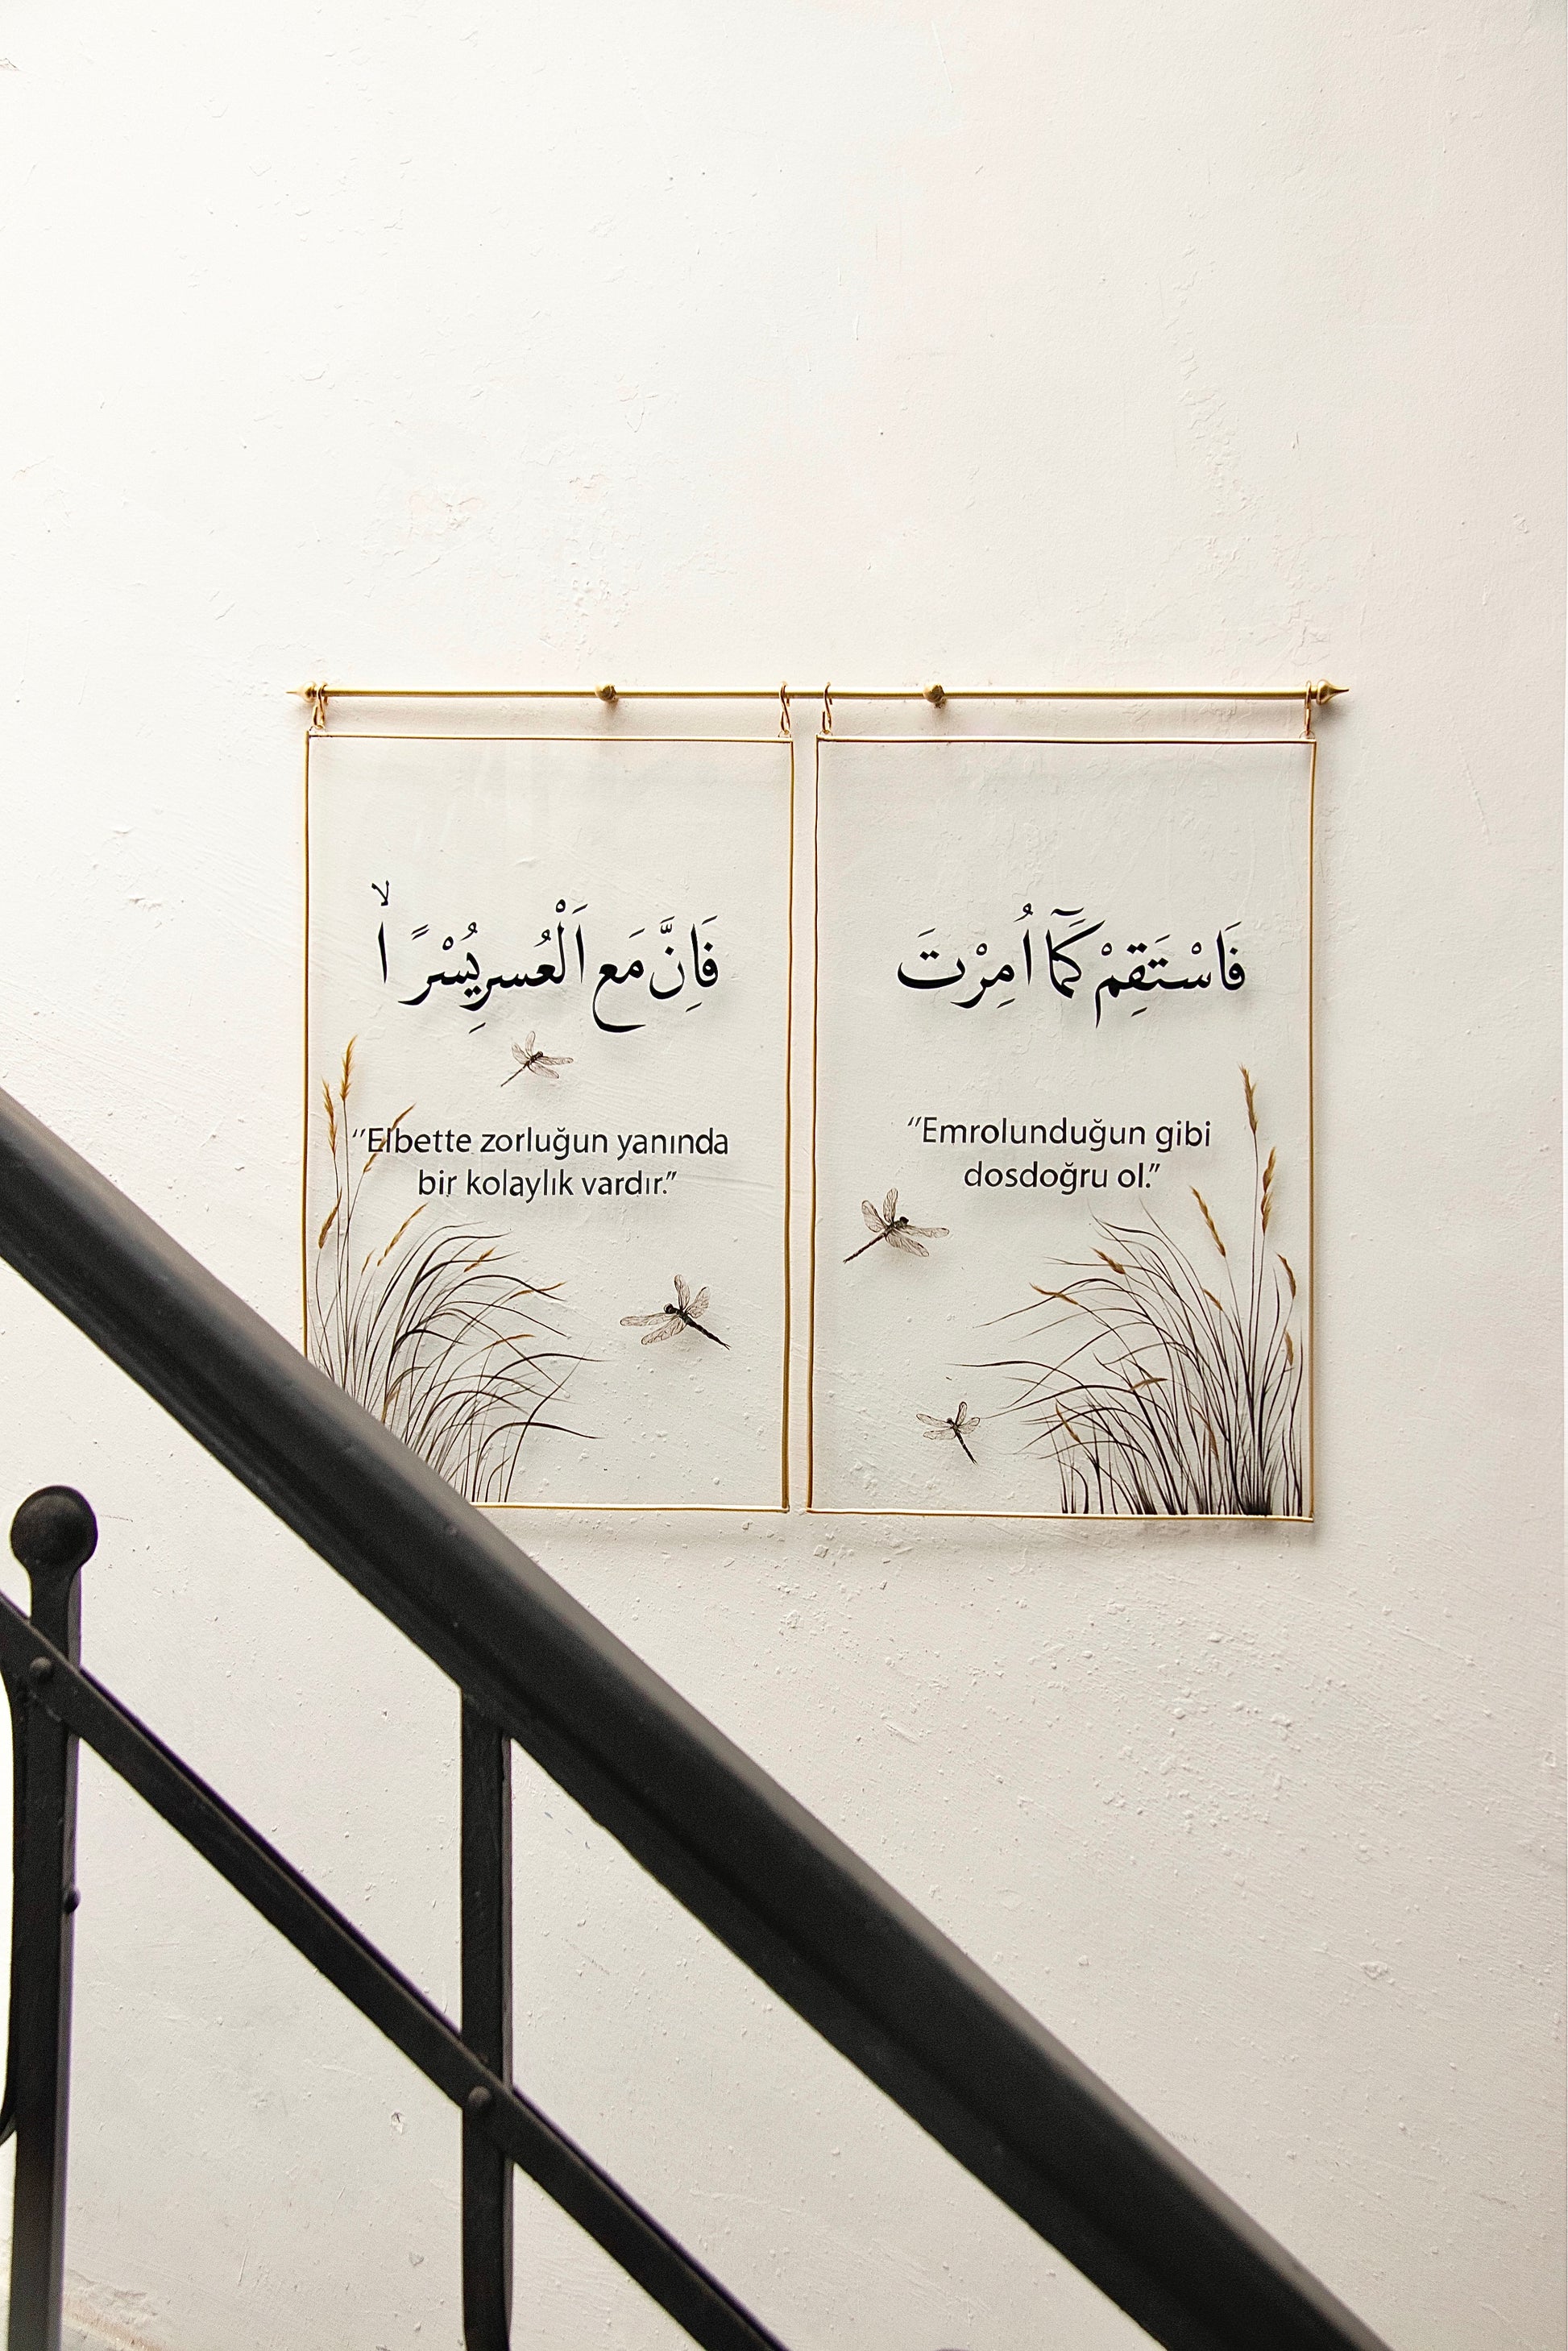 فَاِنَّ مَعَ الْعُسرِيُسْرًاۙ
‘‘Elbette zorluğun yanında
bir kolaylık vardır.’’
فَاسْتَقِمْ كَمَٓا اُمِرْتَ
‘‘Emrolunduğun gibi
dosdoğru ol.’’